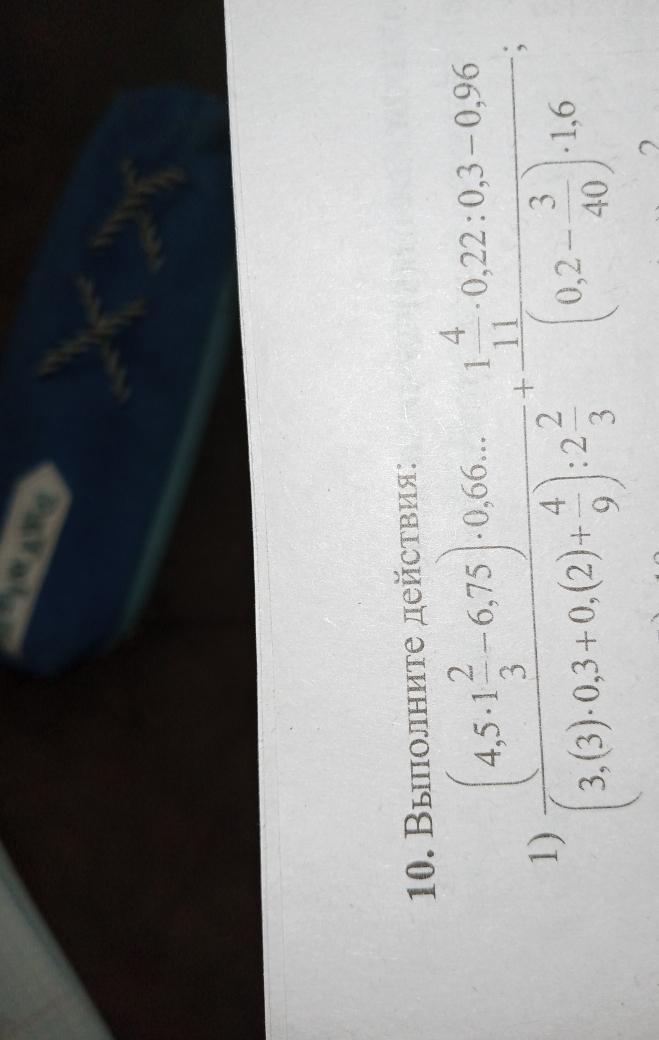 10. Выполните действия:
1) \frac{\left(4,5 \cdot 1\frac{2}{3} - 6,75\right) \cdot 0,66...}{\left(3,(3) \cdot 0,3 + 0,(2) + \frac{4}{9}\right) : 2\frac{2}{3}} + \frac{1\frac{4}{11} \cdot 0,22 : 0,3 - 0,96}{\left(0,2 - \frac{3}{40}\right) \cdot 1,6};